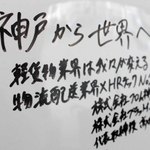 神戸から世界へ
軽貨物業界は我々が変える
物流配送業界×HRテック No.
株式会社
株式会社
代表取締役